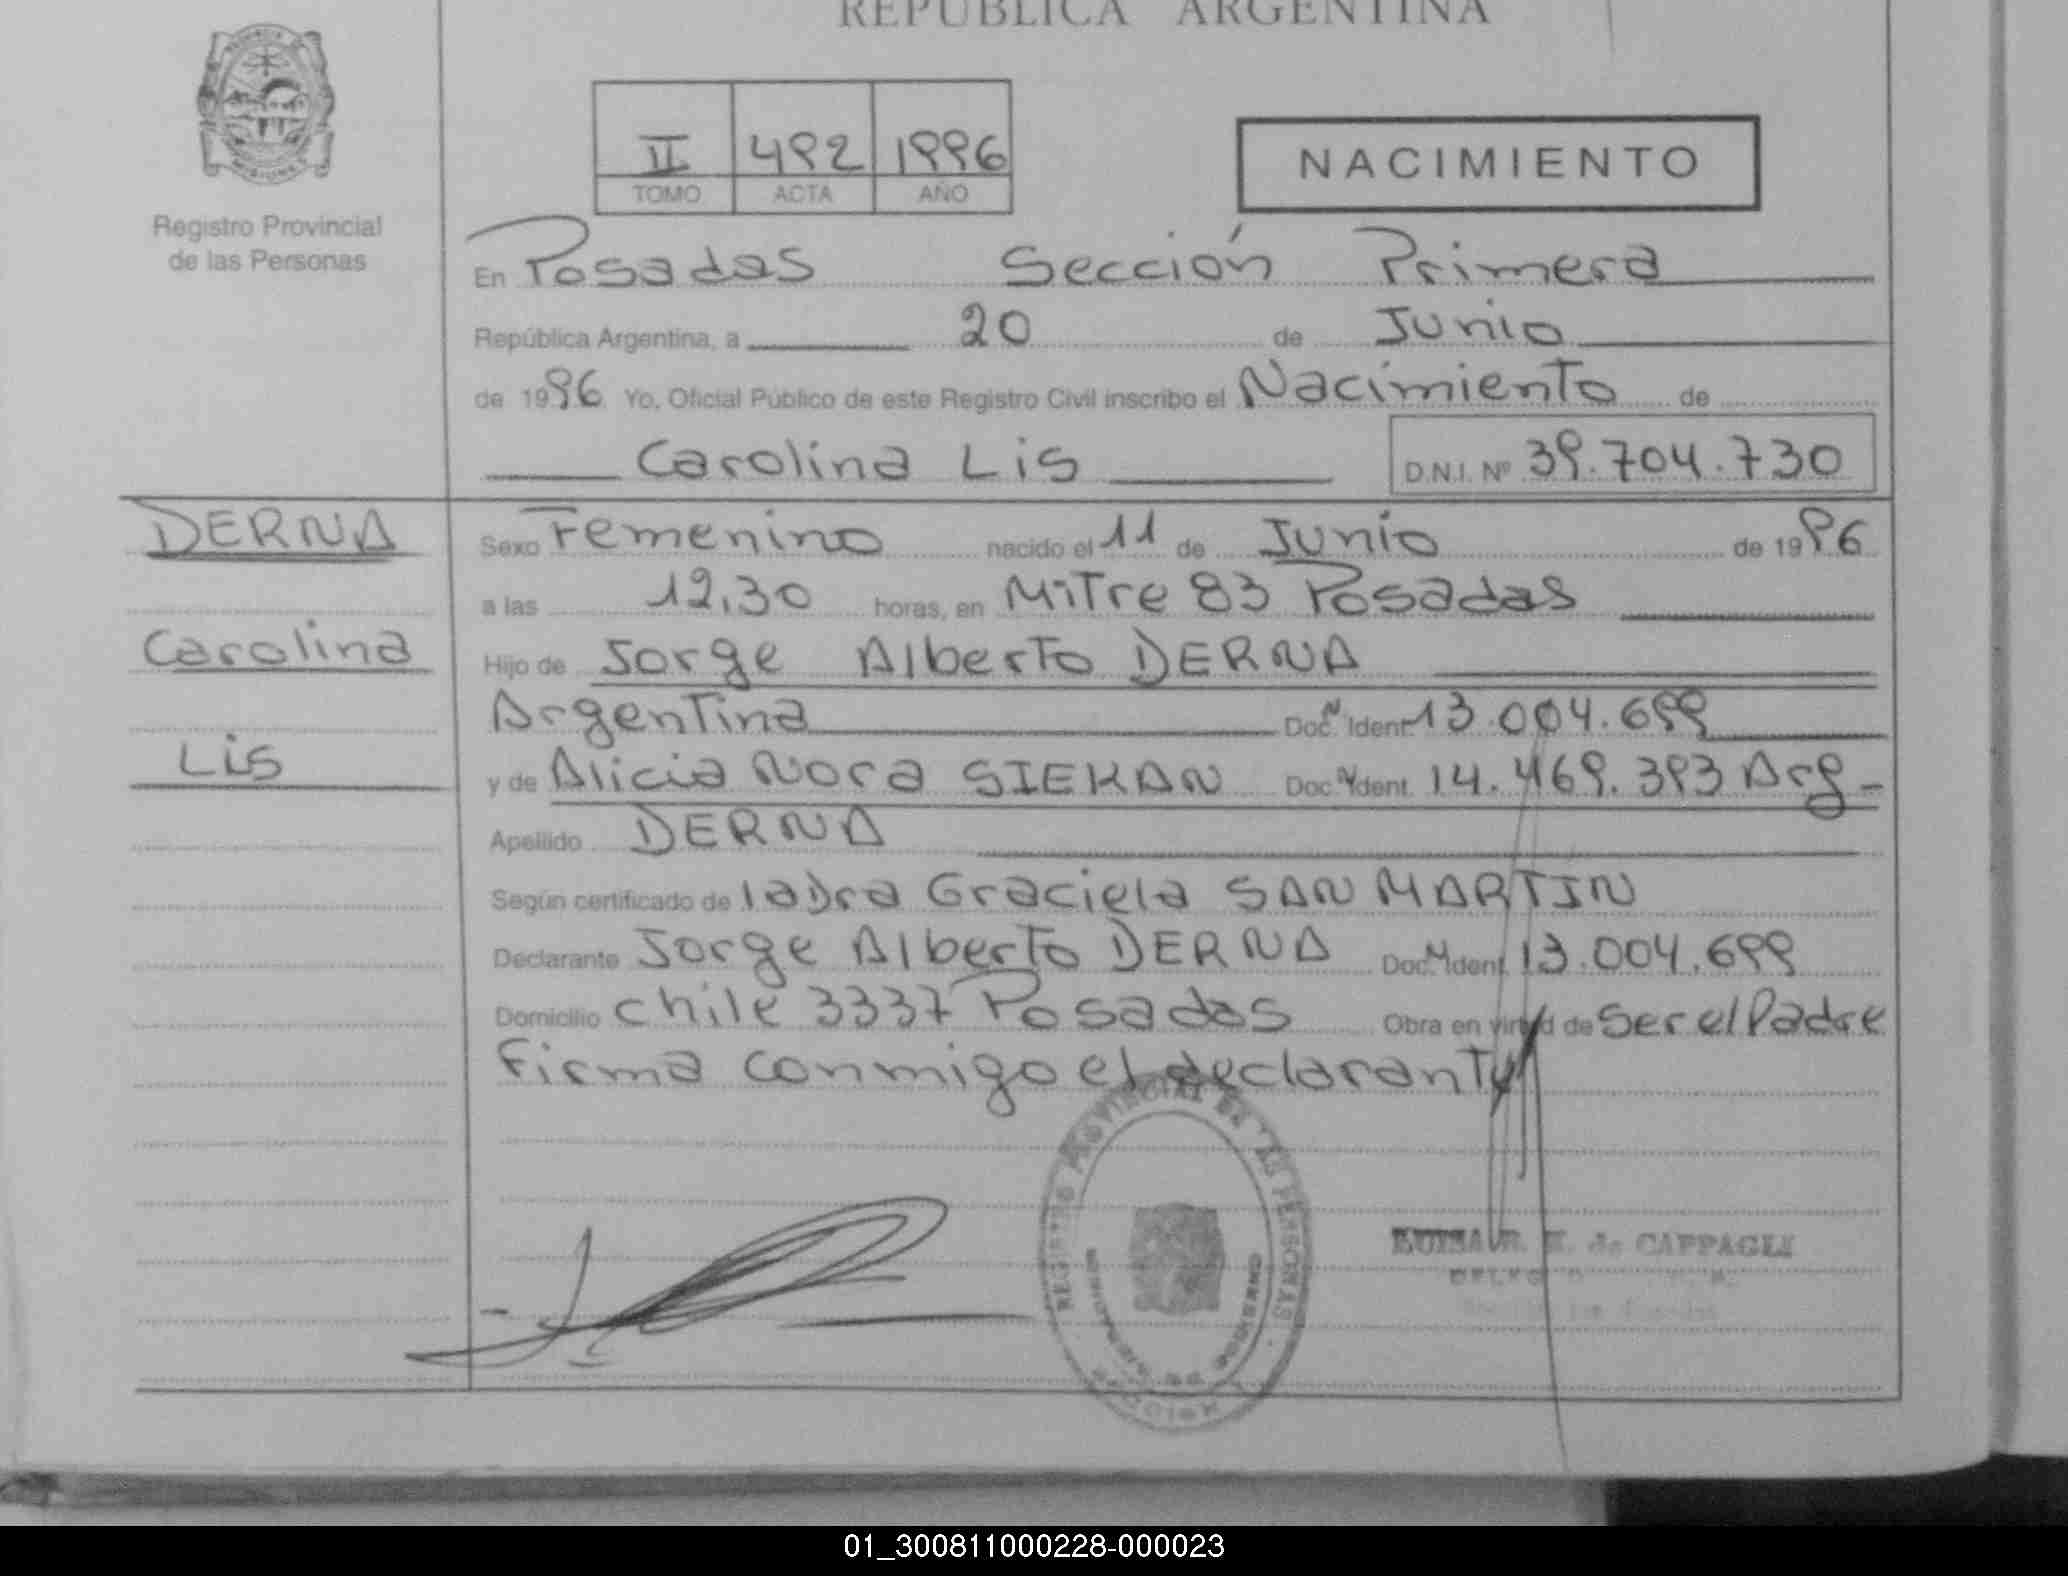 REPUBLICA ARGENTINA
II 492 1996
TOMO ACTA AÑO
NACIMIENTO
Registro Provincial
de las Personas
En Posadas Sección Primera
República Argentina, a 20 de Junio
de 1996 Yo, Oficial Público de este Registro Civil inscribo el Nacimiento de
Carolina Lis D.N.I. Nº 39.704.730
DERNA
Carolina
Lis
Sexo Femenino nacido el 11 de Junio de 1996
a las 12,30 horas, en Mitre 83 Posadas
Hijo de Jorge Alberto DERNA
Argentina Doc. Ident. 13.004.699
y de Alicia Nora SIEKAN Doc. Ident. 14.469.393 Arg-
Apellido DERNA
Según certificado de la Dra Graciela SAN MARTIN
Declarante Jorge Alberto DERNA Doc. Ident. 13.004.699
Domicilio Chile 3337 Posadas Obra en virtud de Ser el Padre
Firma conmigo el declarante
REGISTRO PROVINCIAL DE LAS PERSONAS
MISIONES
de CAPPAGLI
01_300811000228-000023